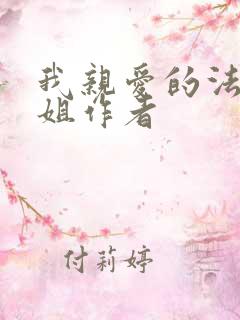 我親愛的法
姐作者
付莉婷